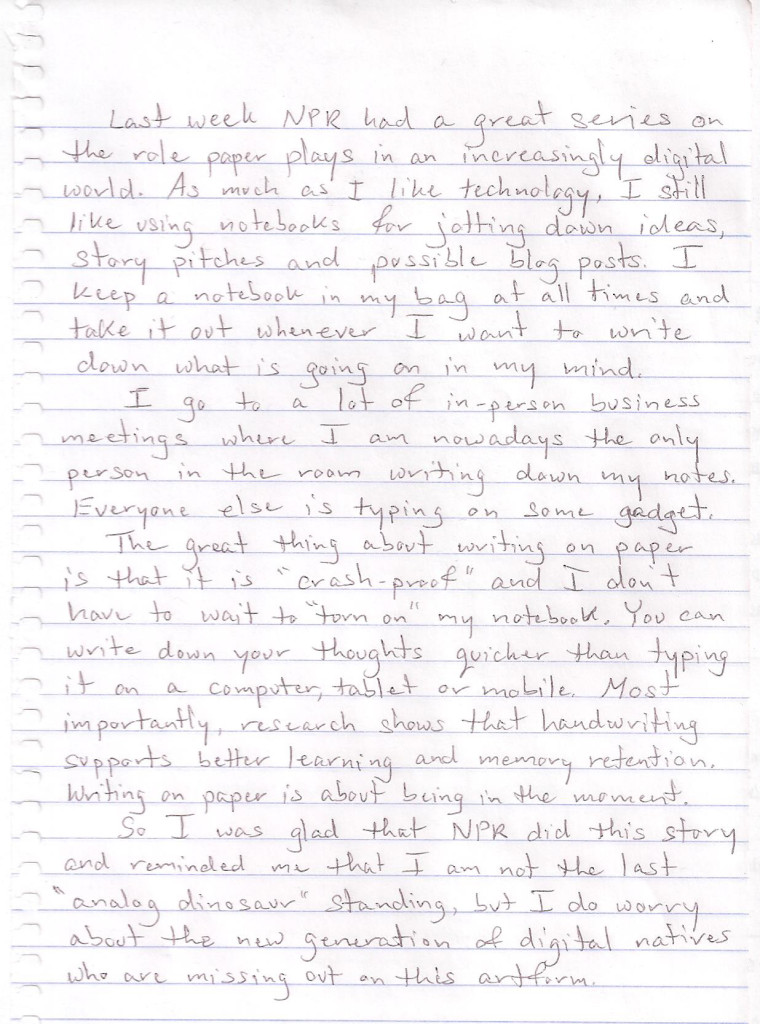 Last week NPR had a great series on
the role paper plays in an increasingly digital
world. As much as I like technology, I still
like using notebooks for jotting down ideas,
story pitches and possible blog posts. I
keep a notebook in my bag at all times and
take it out whenever I want to write
down what is going on in my mind.
I go to a lot of in-person business
meetings where I am nowadays the only
person in the room writing down my notes.
Everyone else is typing on some gadget.
The great thing about writing on paper
is that it is "crash-proof" and I don't
have to wait to "turn on" my notebook. You can
write down your thoughts quicker than typing
it on a computer, tablet or mobile. Most
importantly, research shows that handwriting
supports better learning and memory retention.
Writing on paper is about being in the moment.
So I was glad that NPR did this story
and reminded me that I am not the last
"analog dinosaur" standing, but I do worry
about the new generation of digital natives
who are missing out on this artform.